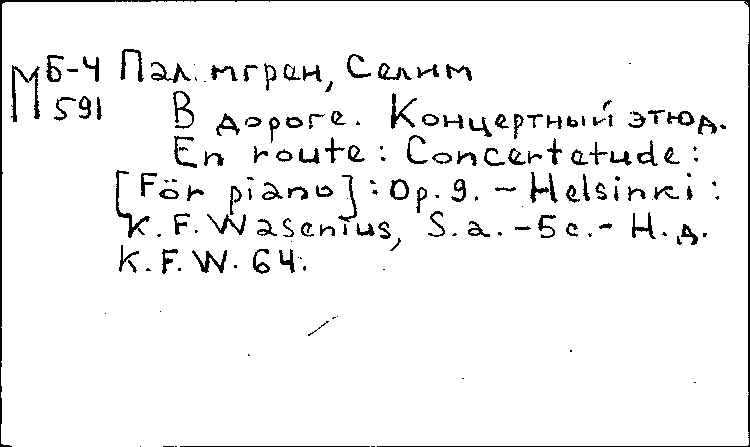 М Б-4 Палмгрен, Селим
591 В дороге. Концертный этюд.
En route: Concertetude:
[För piano]: Op. 9. – Helsinki:
K. F. Wasenius, S. a. – 5 c. – Н. д.
K. F. W. 64.